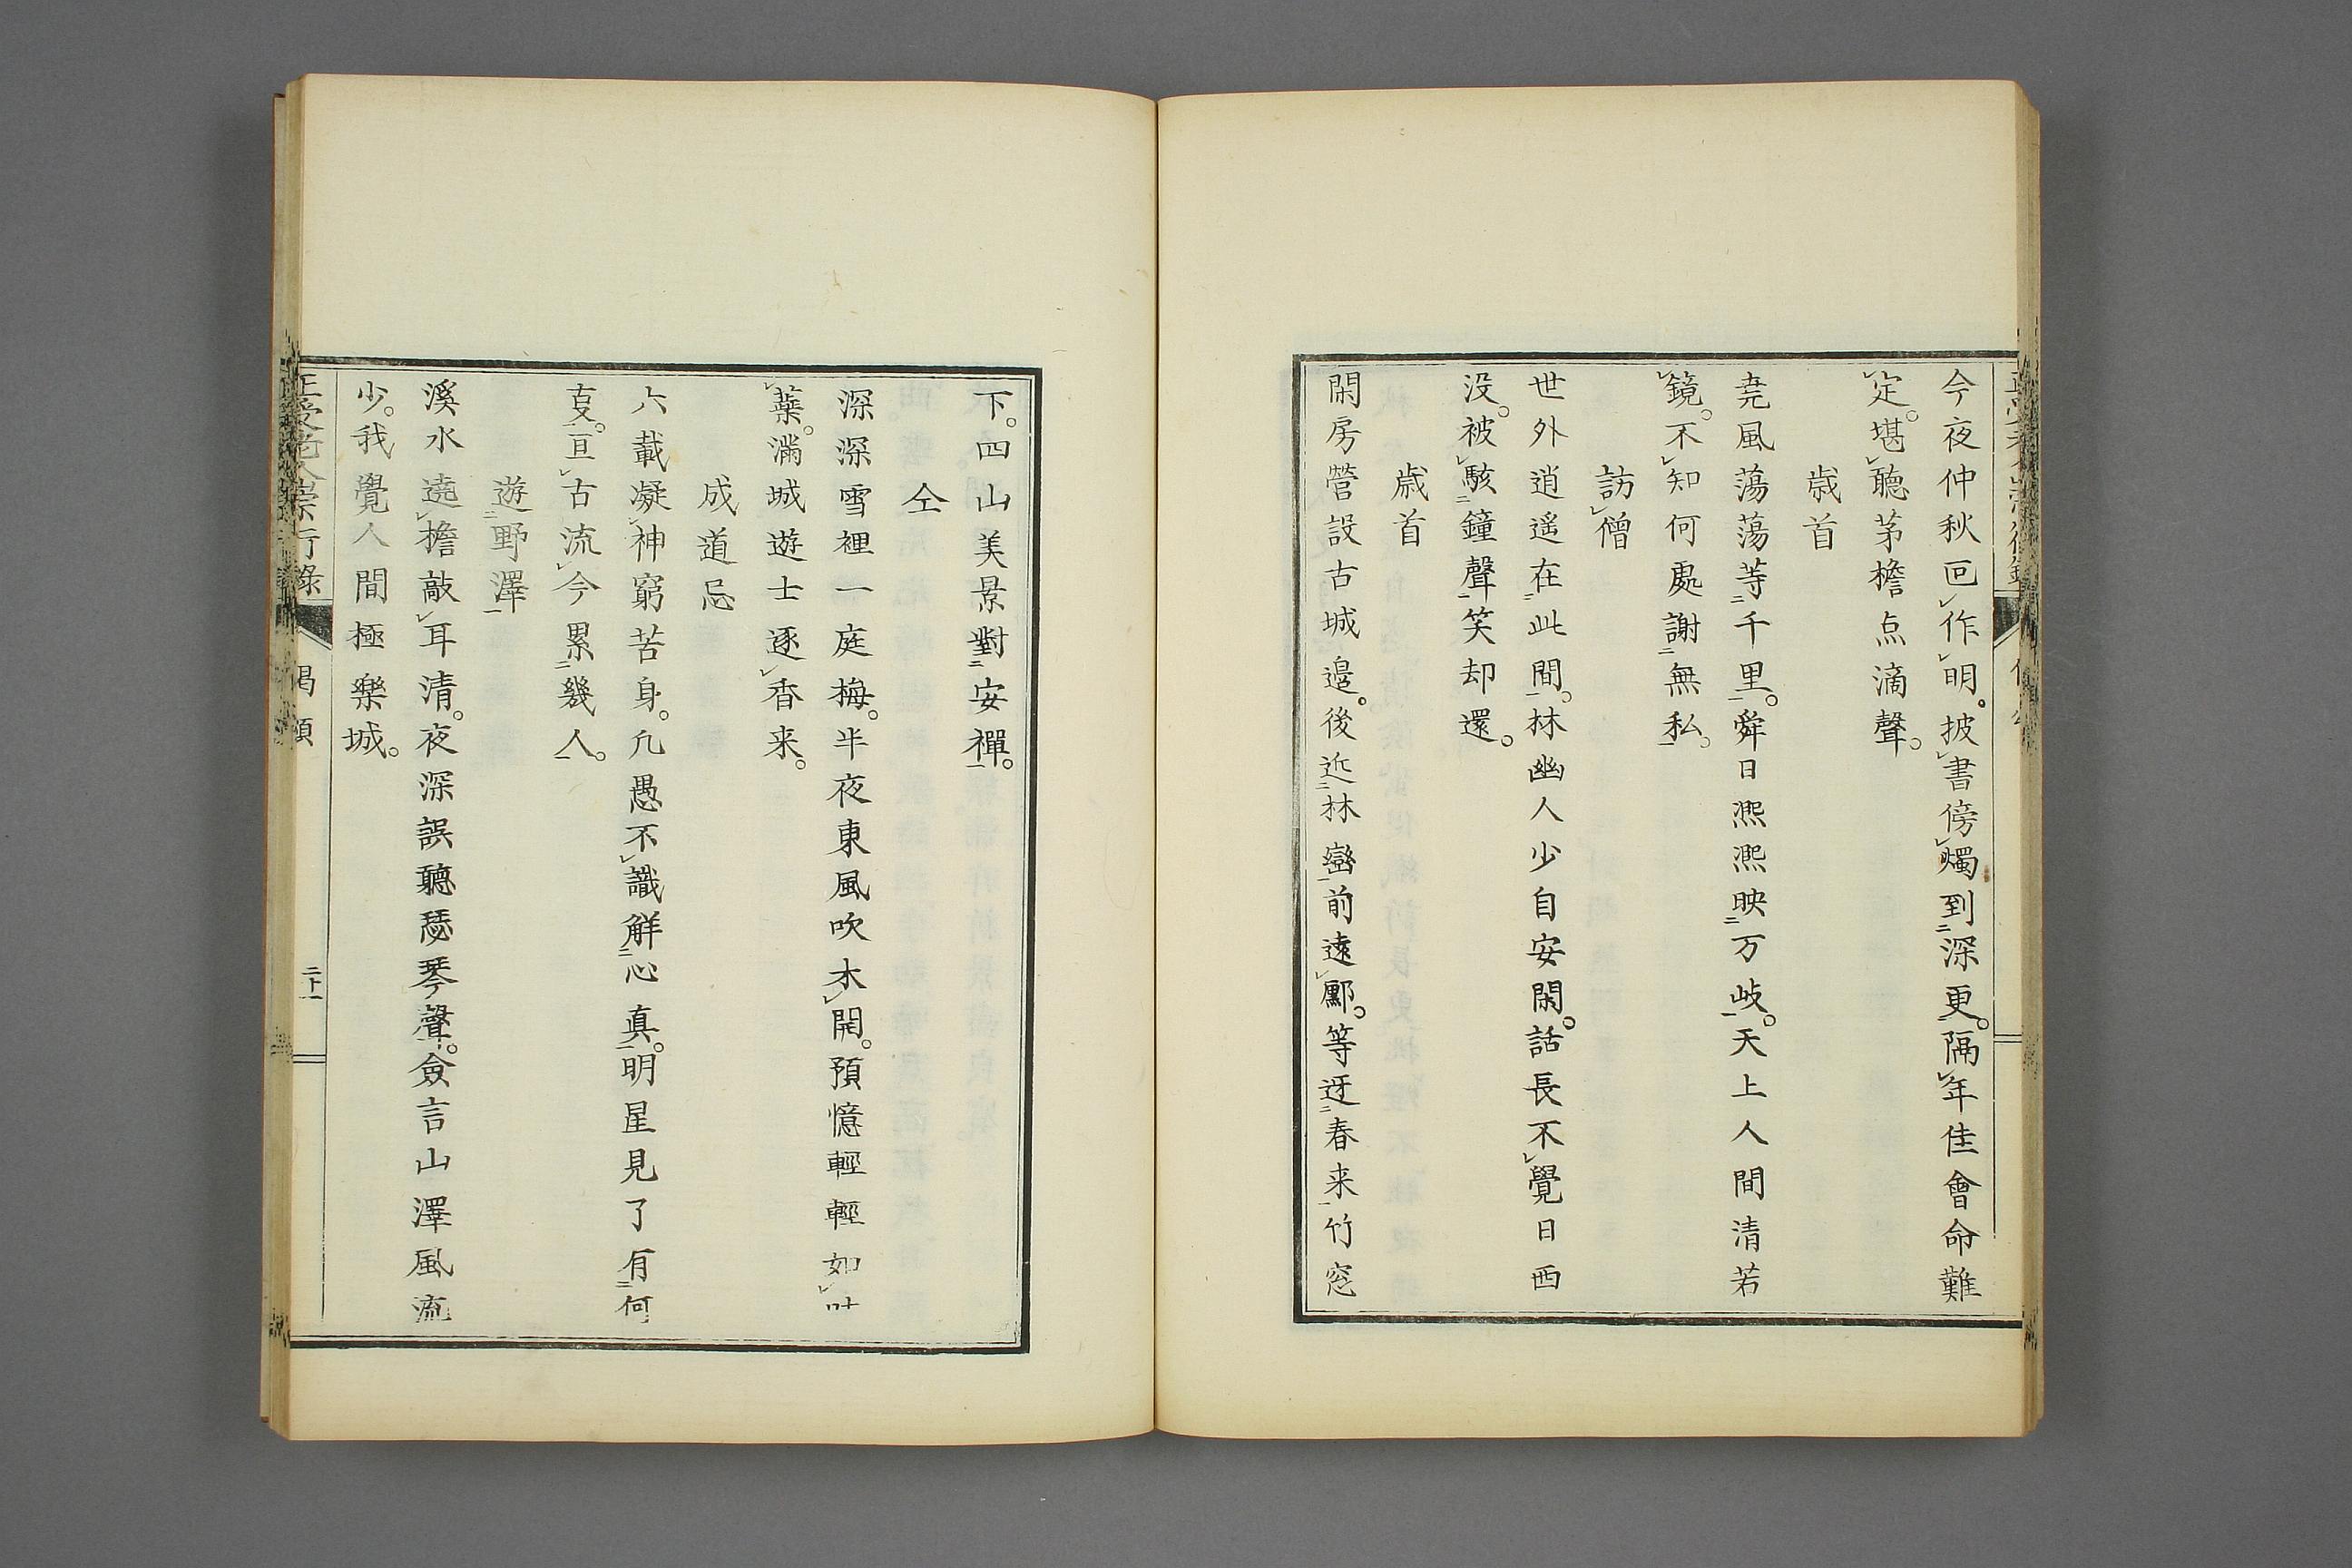 今夜仲秋叵作明。披書傍燭到深更。隔年佳會命難
定。堪聽茅檐点滴聲。
歳首
尭風蕩蕩等千里。舜日凞凞映万岐。天上人間清若
鏡。不知何處謝無私。
訪僧
世外逍遥在此間。林幽人少自安閑。話長不覺日西
没。被駭鐘聲笑却還。
歳首
閑房營設古城邉。後近林巒前遠鄽。等迓春来竹窓
下。四山美景對安禪。
仝
深深雪裡一庭梅。半夜東風吹木開。預憶輕輕如
蘂。滿城遊士逐香来。
成道忌
六載凝神窮苦身。凢愚不識觧心真。明星見了有何
亘古流今累幾人。
遊野澤
溪水遶檐敲耳清。夜深誤聽瑟琴聲。僉言山澤風流
少。我覺人間極樂城。
偈頌
二十一